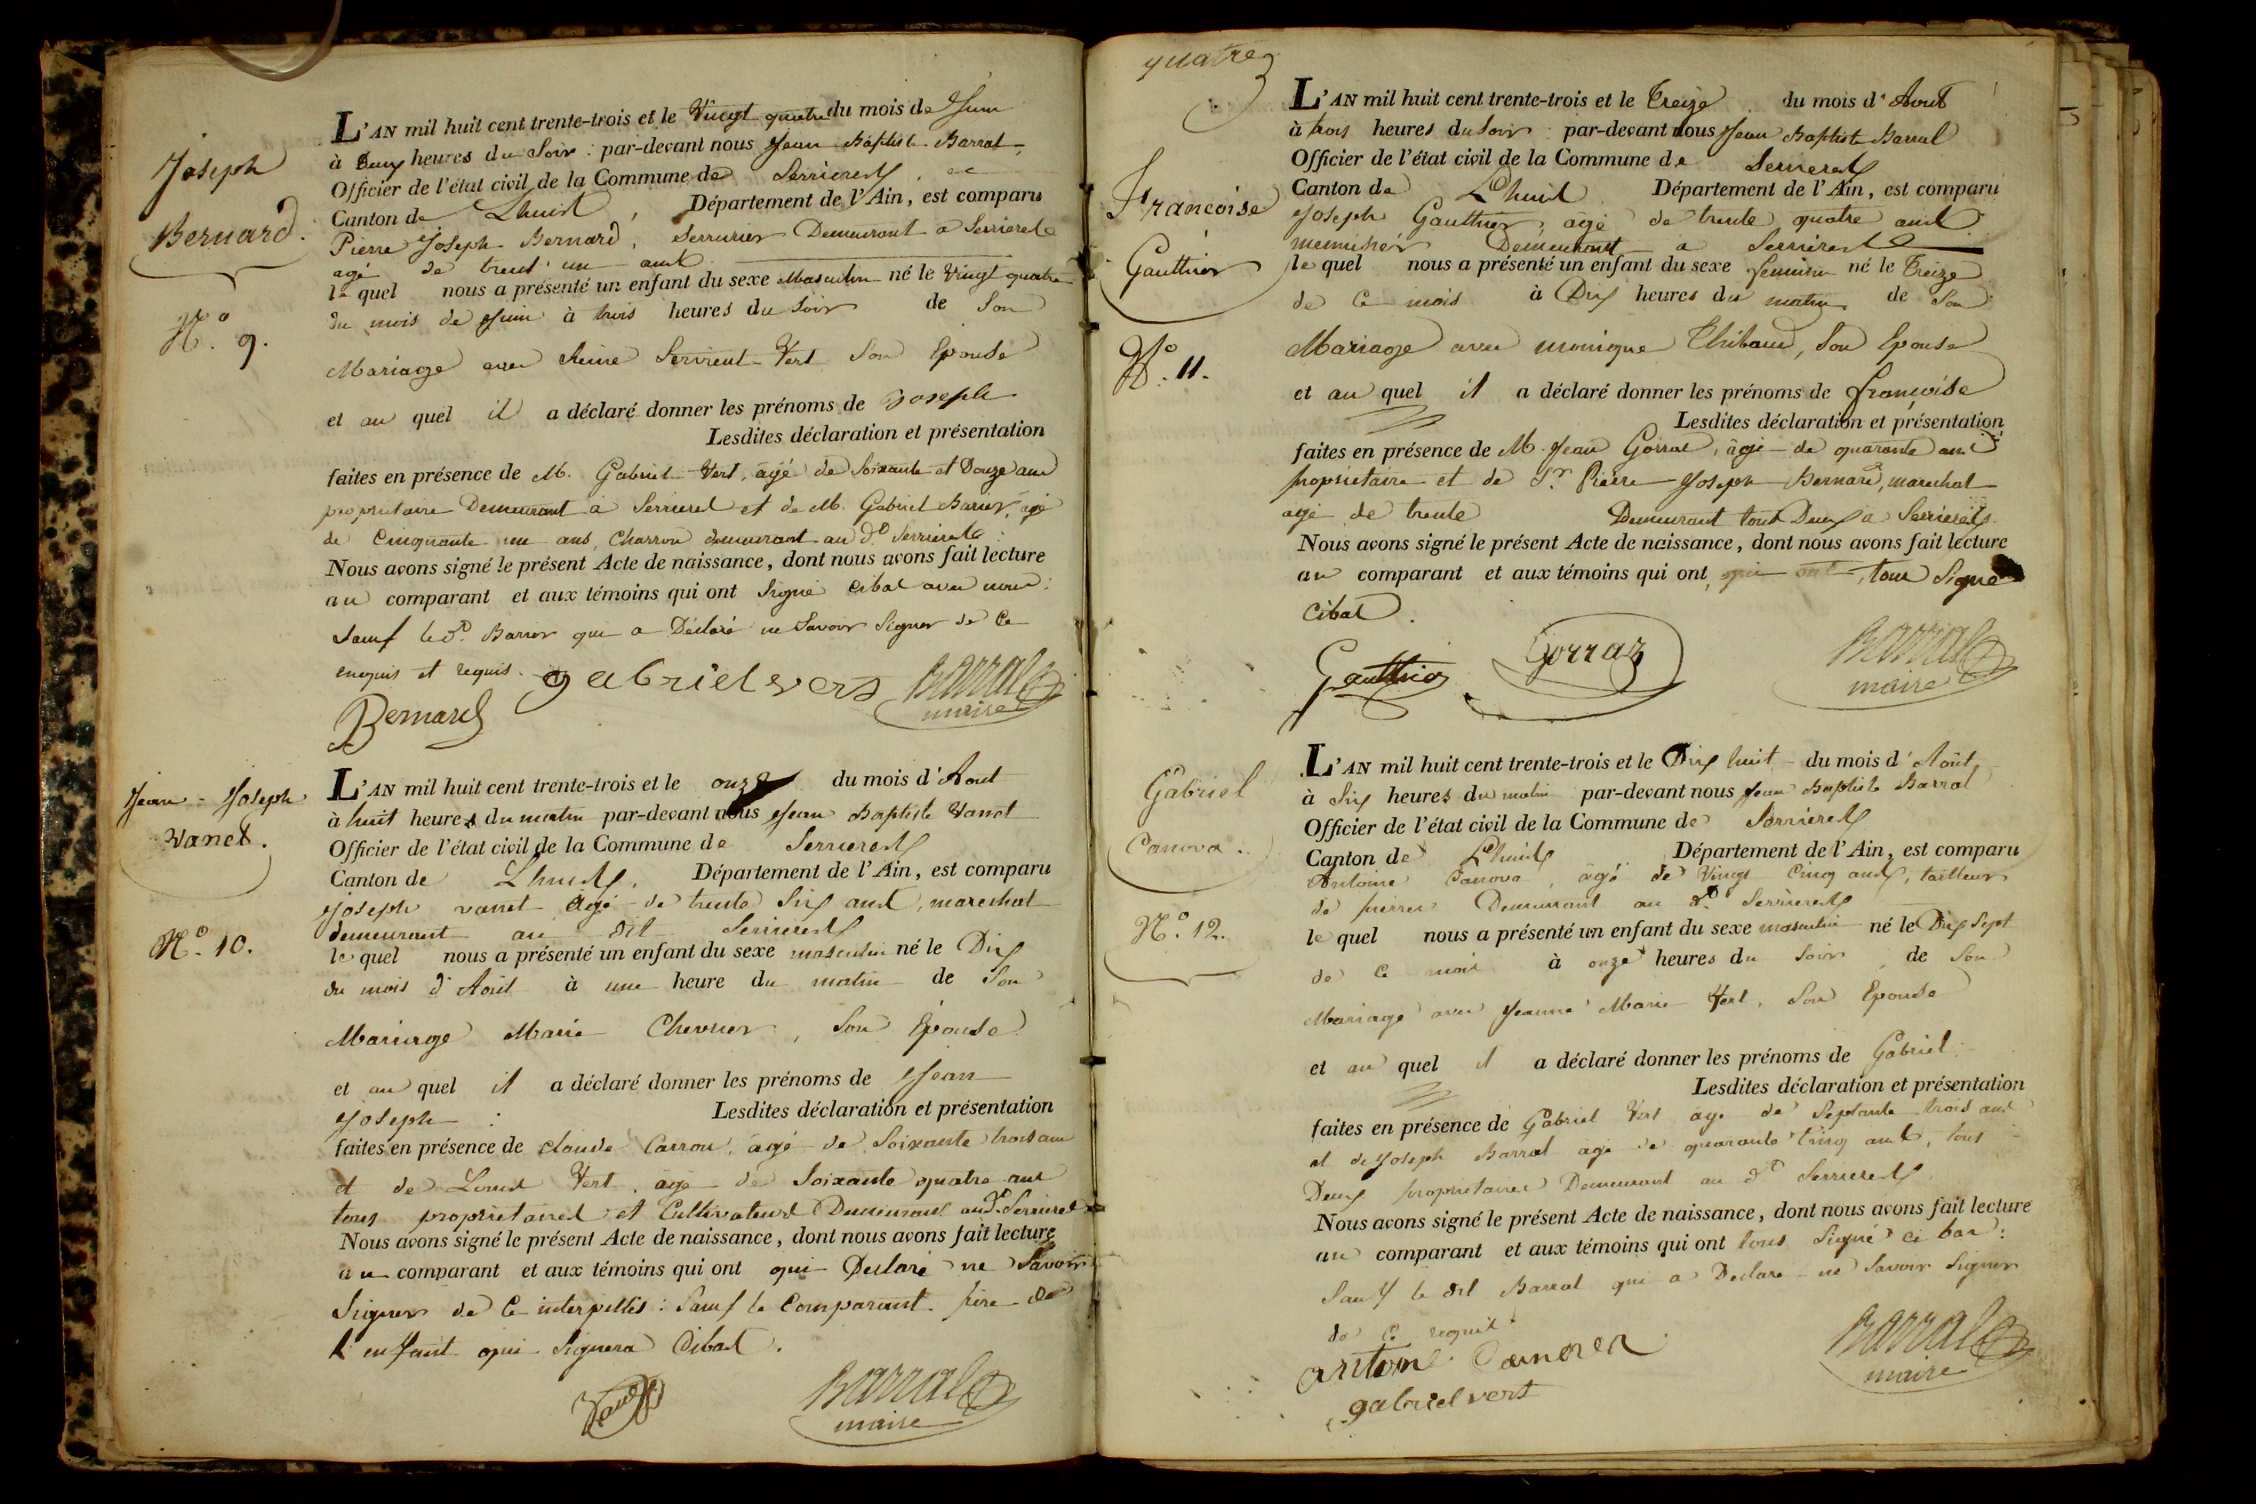 Joseph
Bernard.
N.o 9.
L'AN mil huit cent trente-trois et le Vingt quatre du mois de Juin
à Deux heures du Soir : par-devant nous Jean Baptiste Barral
Officier de l'état civil de la Commune de Serrieres
Canton de Lhuis, Département de l'Ain, est comparu
Pierre Joseph Bernard, Serrurier Demeurant a Serrieres
agé de trent'un ans
le quel nous a présenté un enfant du sexe Masculin né le Vingt quatre
du mois de Juin à trois heures du Soir de Son
Mariage avec Servient Vert Son Epouse
et au quel il a déclaré donner les prénoms de Joseph
Lesdites déclaration et présentation
faites en présence de M. Gabriel Vert, agé de Soixante et Douze ans
proprietaire Demeurant à Serrieres et de M. Gabriel Barier, agé
de Cinquante un ans, Charron demeurant au d.t Serrieres
Nous avons signé le présent Acte de naissance, dont nous avons fait lecture
au comparant et aux témoins qui ont Signé cibas avec nous :
Sauf le d.t Barier qui a Déclaré ne Savoir Signer de Ce
enquis et requis. gabriel vers Barral
maire
Bernard
Jean-Joseph
Vanet.
N.o 10.
L'AN mil huit cent trente-trois et le onze du mois d'Aout
à huit heures du matin par-devant nous Jean Baptiste Vanet
Officier de l'état civil de la Commune de Serrieres
Canton de Lhuis, Département de l'Ain, est comparu
Joseph vanet Agé de trente Six ans, marechal
demeurant au dit Serrieres
le quel nous a présenté un enfant du sexe masculin né le Dix
du mois d'Août à une heure du matin de Son
Mariage Marie Chevrier, Son Epouse
et au quel il a déclaré donner les prénoms de Jean
Joseph : Lesdites déclaration et présentation
faites en présence de claude Carron, agé de Soixante trois ans
et de Louis Vert, agé de Soixante quatre ans
tous proprietaires et Cultivateurs Demeurant au d.t Serrieres
Nous avons signé le présent Acte de naissance, dont nous avons fait lecture
au comparant et aux témoins qui ont qui Declaré ne Savoir
Signer de Ce interpellés : Sauf le Comparant père de
l'enfant qui Signera Cibas.
Barral
maire
quatre
Francoise
Gauthier
N.o 11.
L'AN mil huit cent trente-trois et le Treize du mois d'Aout
à trois heures du Soir : par-devant nous Jean Baptiste Barral
Officier de l'état civil de la Commune de Serrieres
Canton de Lhuis Département de l'Ain, est comparu
Joseph Gauthier, agé de trente quatre ans
menuisier Demeurant a Serrieres
le quel nous a présenté un enfant du sexe feminin né le Treize
de Ce mois à Dix heures du matin de Son
Mariage avec monique Thibaud, Son Epouse
et au quel il a déclaré donner les prénoms de françoise
Lesdites déclaration et présentation
faites en présence de M. Jean Gorraz, âgé de quarante ans
proprietaire et de S.r Pierre Joseph Bernard, marechal
agé de trente Demeurant tous Deux a Serrieres.
Nous avons signé le présent Acte de naissance, dont nous avons fait lecture
au comparant et aux témoins qui ont, qui ont, tous Signé
cibas.
Gauthier Gorraz Barral
maire
Gabriel
Canova.
N.o 12.
L'AN mil huit cent trente-trois et le Dix huit du mois d'Août
à Six heures du matin par-devant nous Jean Baptiste Barral
Officier de l'état civil de la Commune de Serrieres
Canton de Lhuis Département de l'Ain, est comparu
Antoine Canova, agé de Vingt Cinq ans, tailleur
de pierres Demeurant au d.t Serrieres
le quel nous a présenté un enfant du sexe masculin né le Dix Sept
de Ce mois à onze heures du Soir, de Son
Mariage avec Jeanne Marie Vert, Son Epouse
et au quel il a déclaré donner les prénoms de Gabriel
Lesdites déclaration et présentation
faites en présence de Gabriel Vert agé de Septante trois ans
et de Joseph Barral agé de quarante Cinq ans, tous
Deux proprietaires Demeurant au d.t Serrieres
Nous avons signé le présent Acte de naissance, dont nous avons fait lecture
au comparant et aux témoins qui ont tous Signé ci bas :
Sauf le dit Barral qui a Declaré ne Savoir Signer
de Ce requis
antoine Canova Barral
maire
gabriel vert